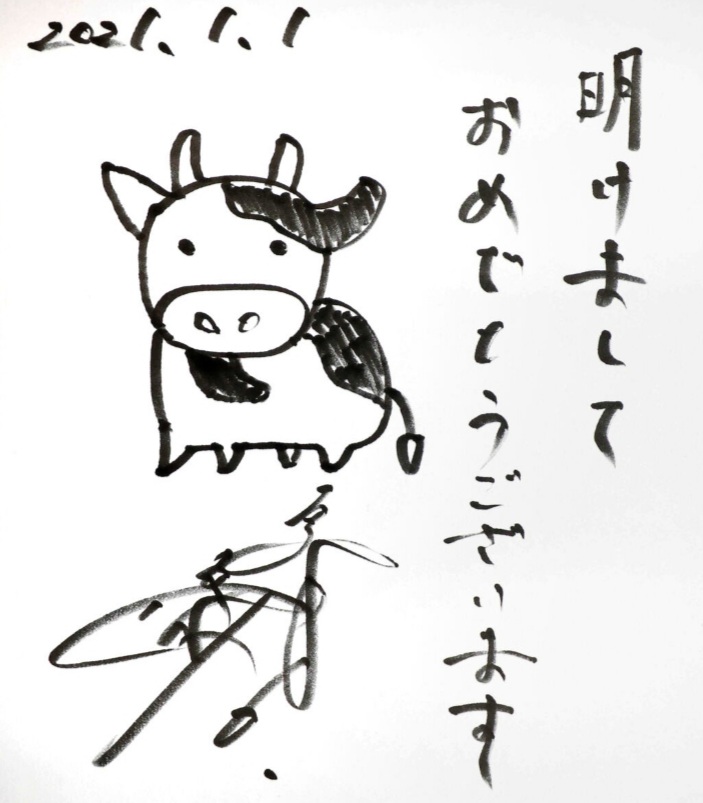 2021.1.1
明けまして
おめでとうございます